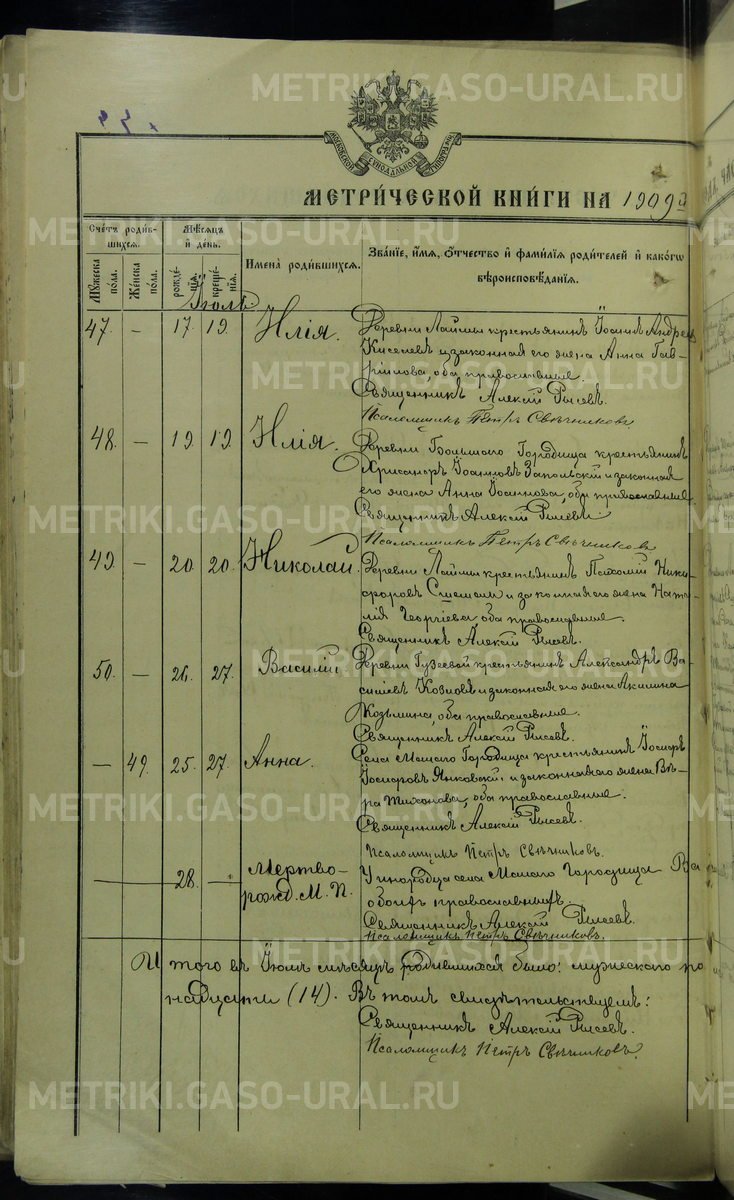 МОСКОВСКОЙ СѴНОДАЛЬНОЙ ТИПОГРАФІИ
МЕТРИ́ЧЕСКОЙ КНИ́ГИ НА 1909
Счетъ роди́вшихся.
Мѣ́сяцъ и́ де́нь.
Имена̀ роди́вшихся.
Зва́нїе, и́мя, ѻ́тчество и̑ фами́лїя роди́телей и̑ како́гѡ
вѣроисповѣ́данїя.
Мꙋ́жеска по́ла.
Же́нска по́ла.
рожде́нїя.
креще́нїя.
Іюль
47. – 17. 19. Илія. Деревни Лаймы крестьянинъ Іоаннъ Андреевъ
Киселевъ и законная его жена Анна Гав-
ріилова, оба православные.
Священникъ Алексій Рысевъ.
Псаломщикъ Петръ Свѣчниковъ
48. – 19. 19. Илія. Деревни Большаго Городища крестьянинъ
Хрисанфъ Іоанновъ Запольскій и законная
его жена Анна Іоаннова, оба православные.
Священникъ Алексій Рысевъ.
Псаломщикъ Петръ Свѣчниковъ
49. – 20. 20. Николай. Деревни Лаймы крестьянинъ Пахомій Ники-
форовъ и законная его жена Ната-
лія Георгіева, оба православные.
Священникъ Алексій Рысевъ.
50. – 26. 27. Василій Деревни Гузеевой крестьянинъ Александръ Ва-
сильевъ Козловъ и законная его жена Акилина
Козьмина, оба православные.
Священникъ Алексій Рысевъ.
– 49. 25. 27. Анна. Села Малаго Городища крестьянинъ Іосифъ
Іосифовъ Янковскій и законная его жена Вѣ-
ра Тихонова, оба православные.
Священникъ Алексій Рысевъ.
Псаломщикъ Петръ Свѣчниковъ.
28. – Мертво-
рожд. М. П.
У инородца села Малаго Городища Ва
обоихъ православныхъ.
Священникъ Алексій Рысевъ.
Псаломщикъ Петръ Свѣчниковъ.
Итого въ Іюлѣ мѣсяцѣ родившихся было: мужескаго по
надцать (14). Въ томъ свидѣтельствуемъ:
Священникъ Алексій Рысевъ.
Псаломщикъ Петръ Свѣчниковъ.
METRIKI.GASO-URAL.RU